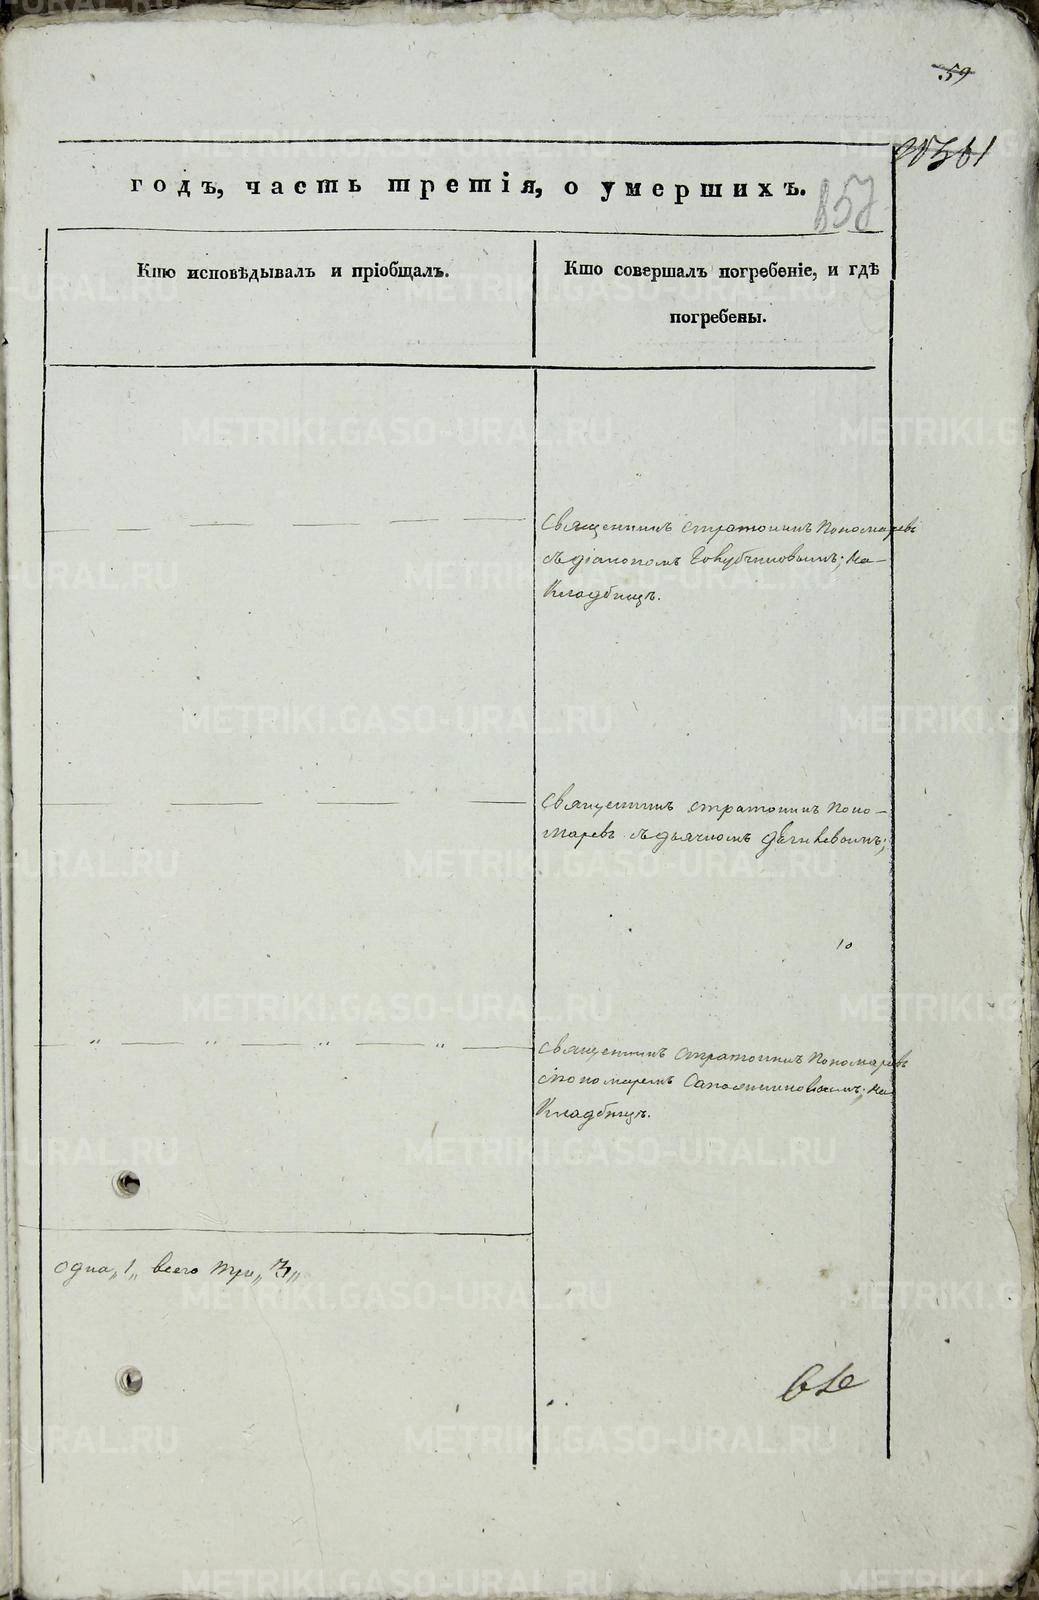 59
годъ, часть третія, о умершихъ.
157
Кто исповѣдывалъ и пріобщалъ.
Кто совершалъ погребеніе, и гдѣ
погребены.
Священникъ Стратоникъ Пономаревъ
съ діакономъ на
Кладбищѣ.
Священникъ Стратоникъ Поно-
маревъ съ дьячкомъ
10
Священникъ Стратоникъ Пономаревъ
съ пономаремъ на
Кладбищѣ.
одна „1„ всего три „3„
METRIKI.GASO-URAL.RU